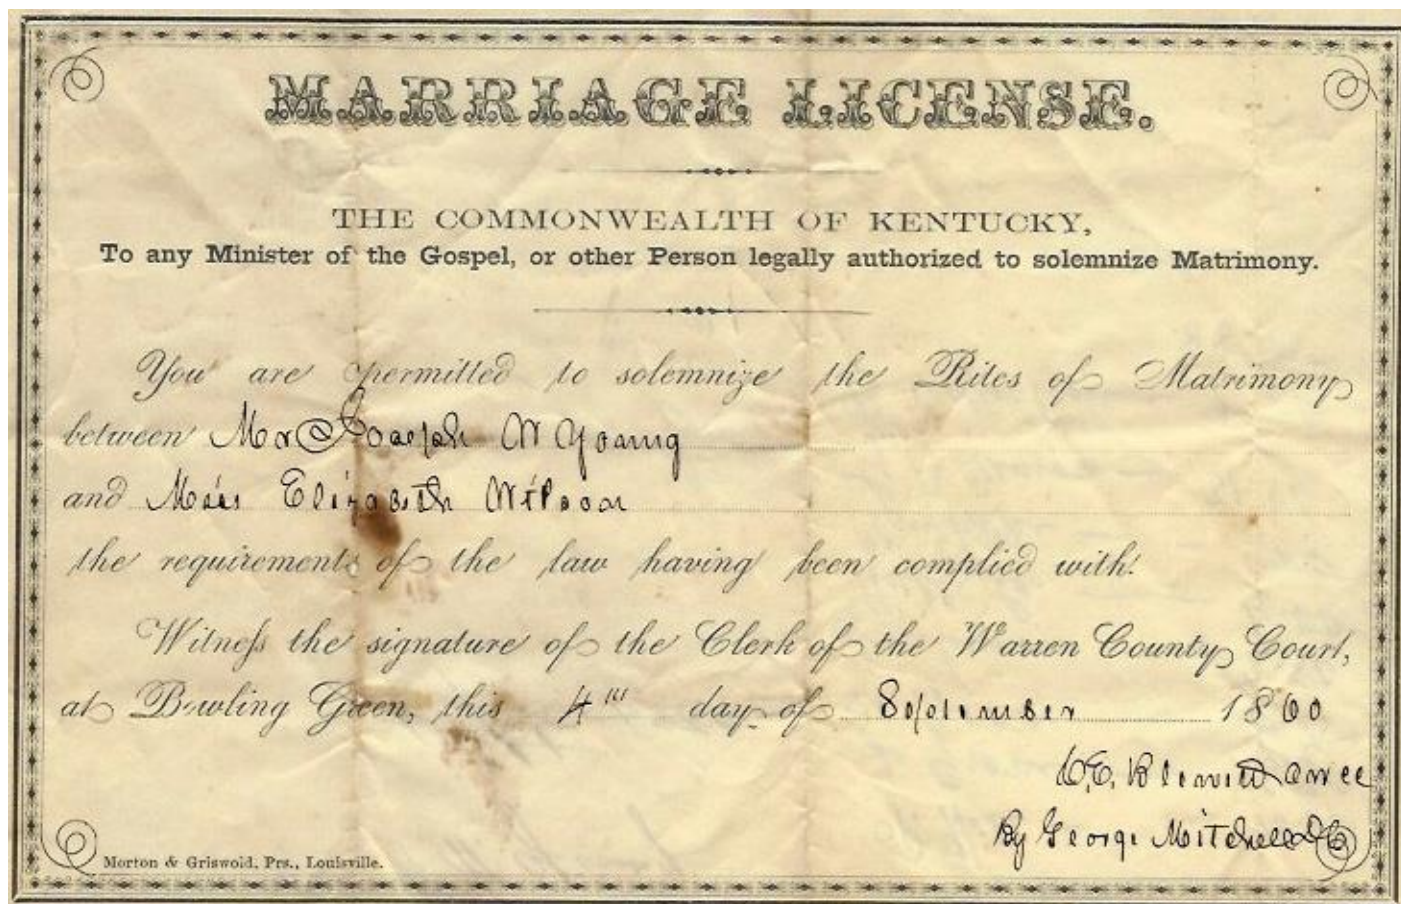 MARRIAGE LICENSE.
THE COMMONWEALTH OF KENTUCKY,
To any Minister of the Gospel, or other Person legally authorized to solemnize Matrimony.
You are permitted to solemnize the Rites of Matrimony
between Mr Joseph W Young
and Miss Elizabeth Wilson
the requirements of the law having been complied with.
Witness the signature of the Clerk of the Warren County Court,
at Bowling Green, this 4th day of September 1860
By George Mitchell DC
Morton & Griswold, Prs., Louisville.